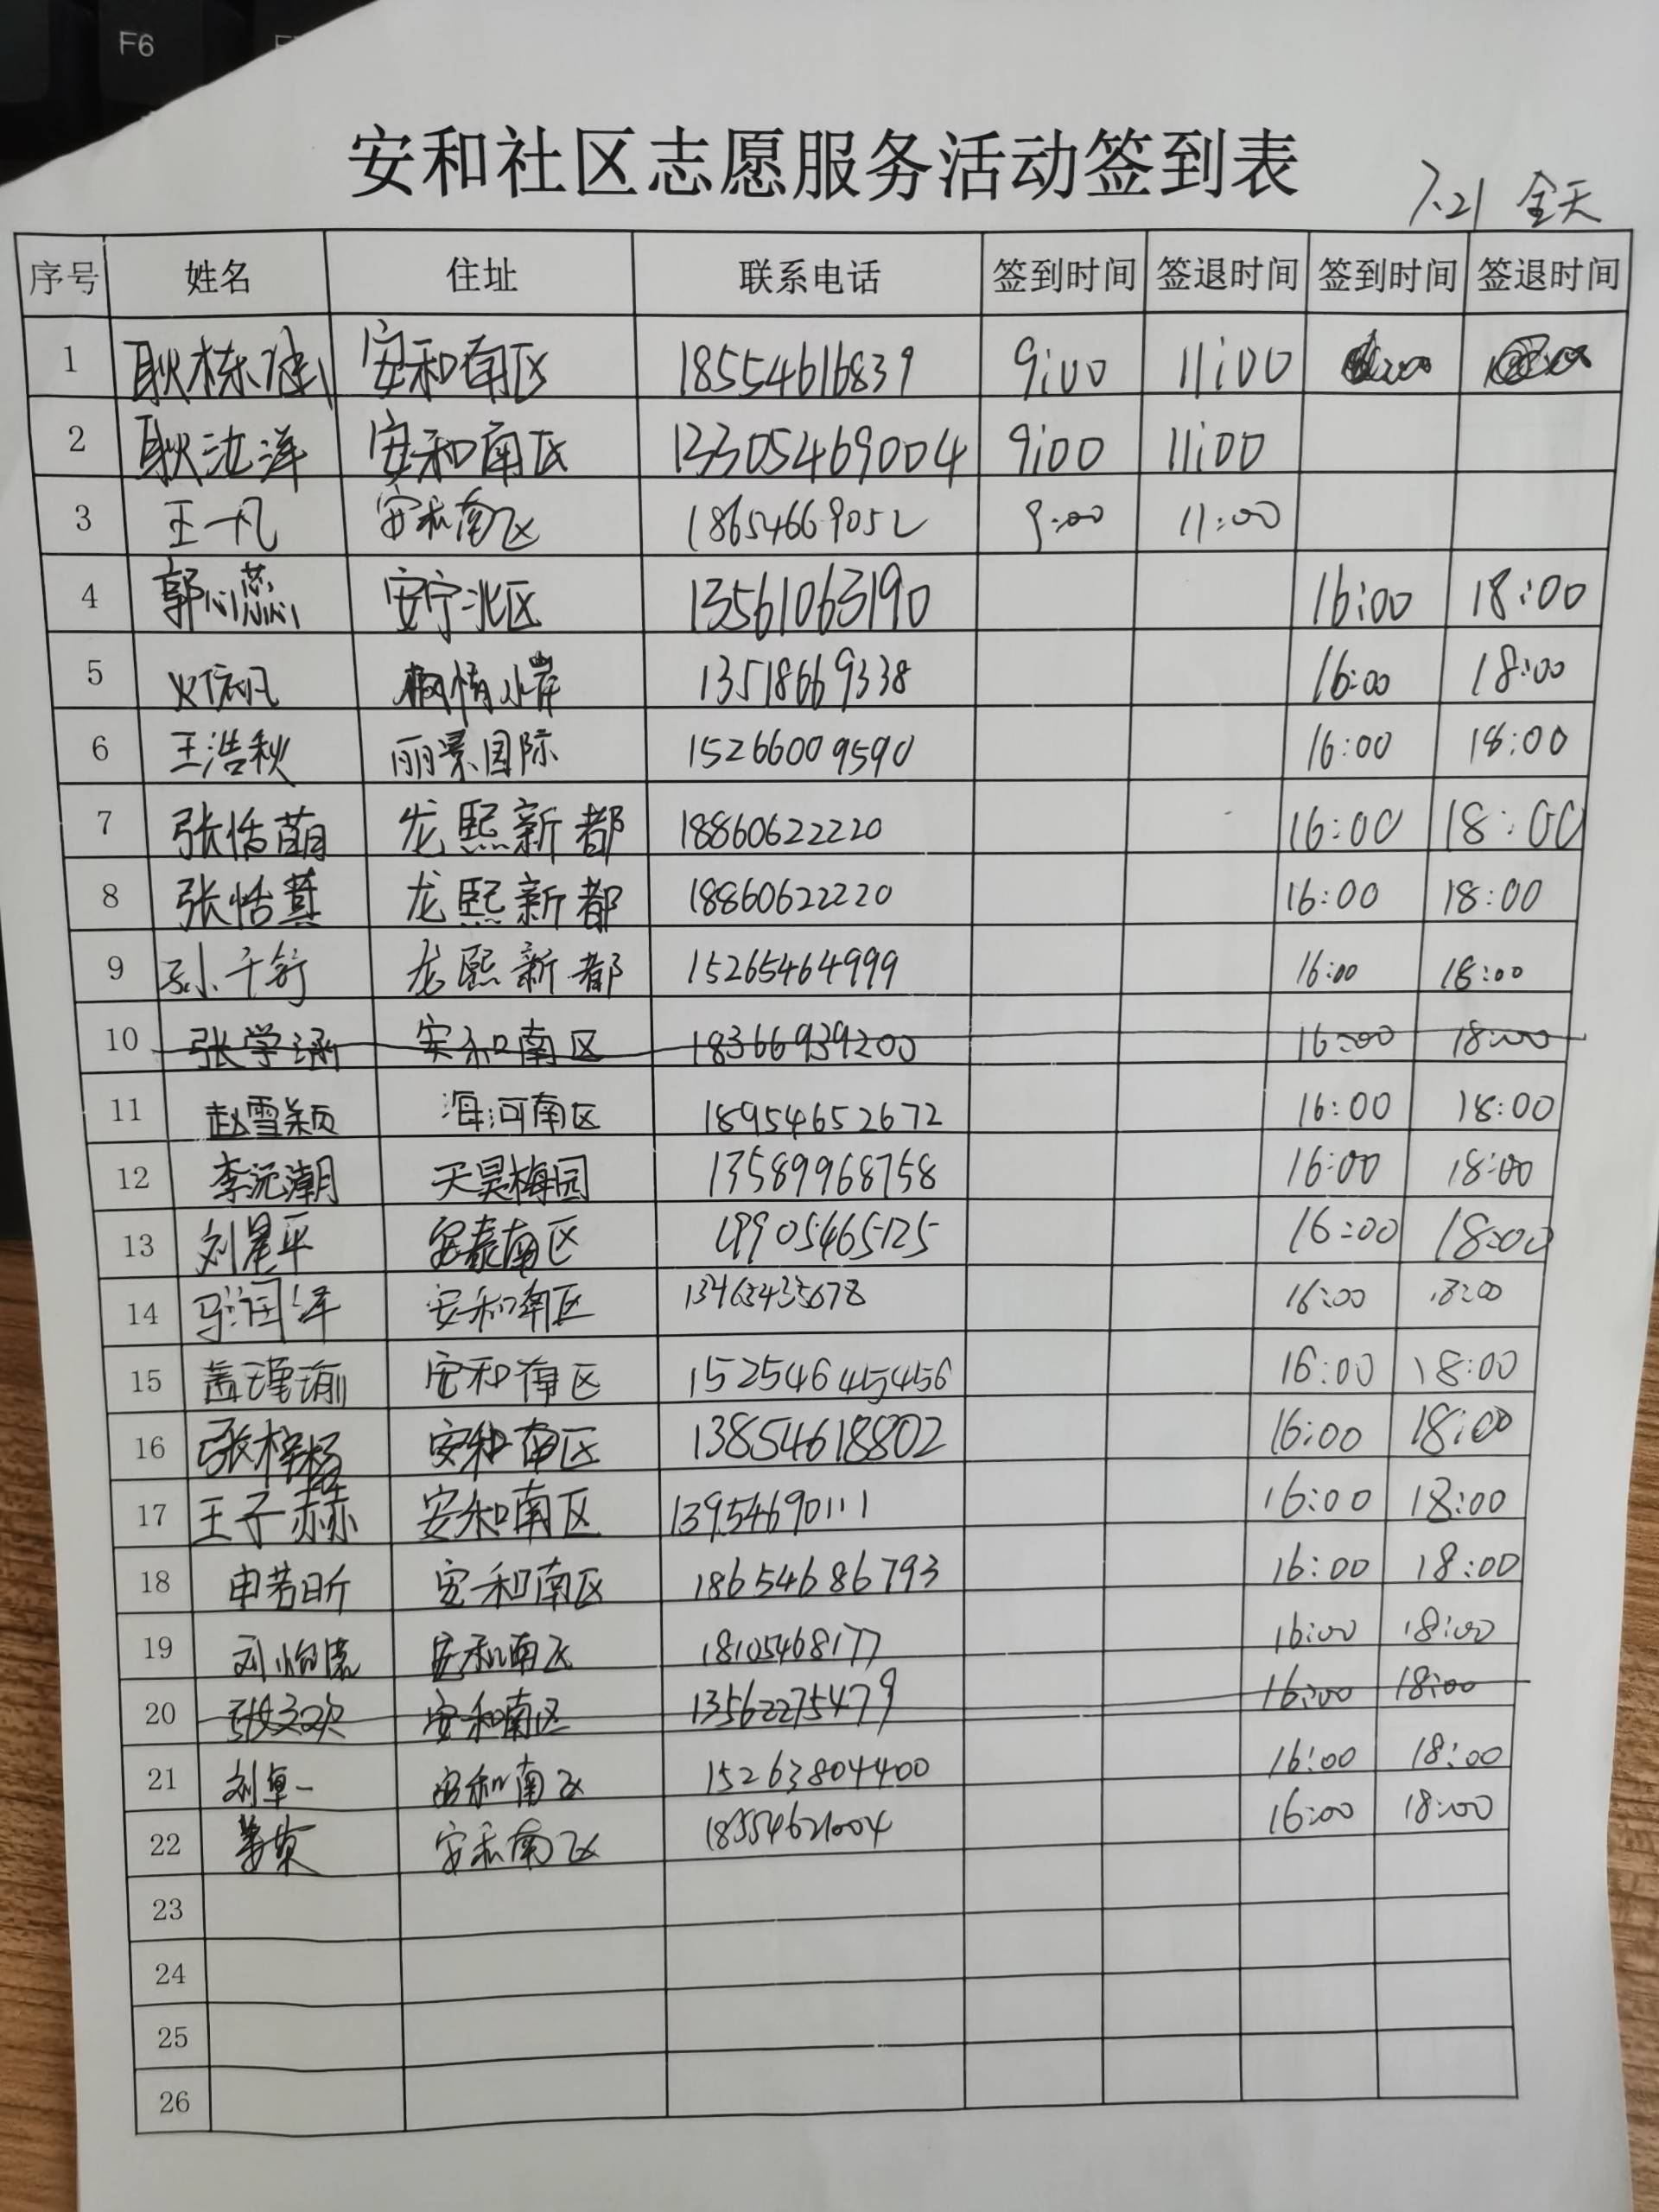 F6
安和社区志愿服务活动签到表
7.21 全天
序号 姓名 住址 联系电话 签到时间 签退时间 签到时间 签退时间
1 耿栋 安和南区 18554616839 9:00 11:00
2 耿 安和南区 13305469004 9:00 11:00
3 王一凡 安和南区 18654669052 9:00 11:00
4 郭心蕊 安宁北区 13561063190 16:00 18:00
5 枫情水岸 13518669338 16:00 18:00
6 王浩秋 丽景国际 15266009590 16:00 18:00
7 张恬萌 龙熙新都 18860622220 16:00 18:00
8 张恬 龙熙新都 18860622220 16:00 18:00
9 孙千 龙熙新都 15265464999 16:00 18:00
10 张学涵 安和南区 18366939200 16:00 18:00
11 赵雪颖 海河南区 18954652672 16:00 18:00
12 李沅潮 天昊梅园 13589968758 16:00 18:00
13 刘星平 安泰南区 19905465125 16:00 18:00
14 安和南区 16:00 18:00
15 盖瑾瑜 安和南区 16:00 18:00
16 张梓杨 安和南区 13854618802 16:00 18:00
17 王子赫 安和南区 13954690111 16:00 18:00
18 申若昕 安和南区 18654686793 16:00 18:00
19 安和南区 18105468177 16:00 18:00
20 安和南区 13562275479 16:00 18:00
21 刘卓一 安和南区 15263804400 16:00 18:00
22 安和南区 18554621004 16:00 18:00
23
24
25
26